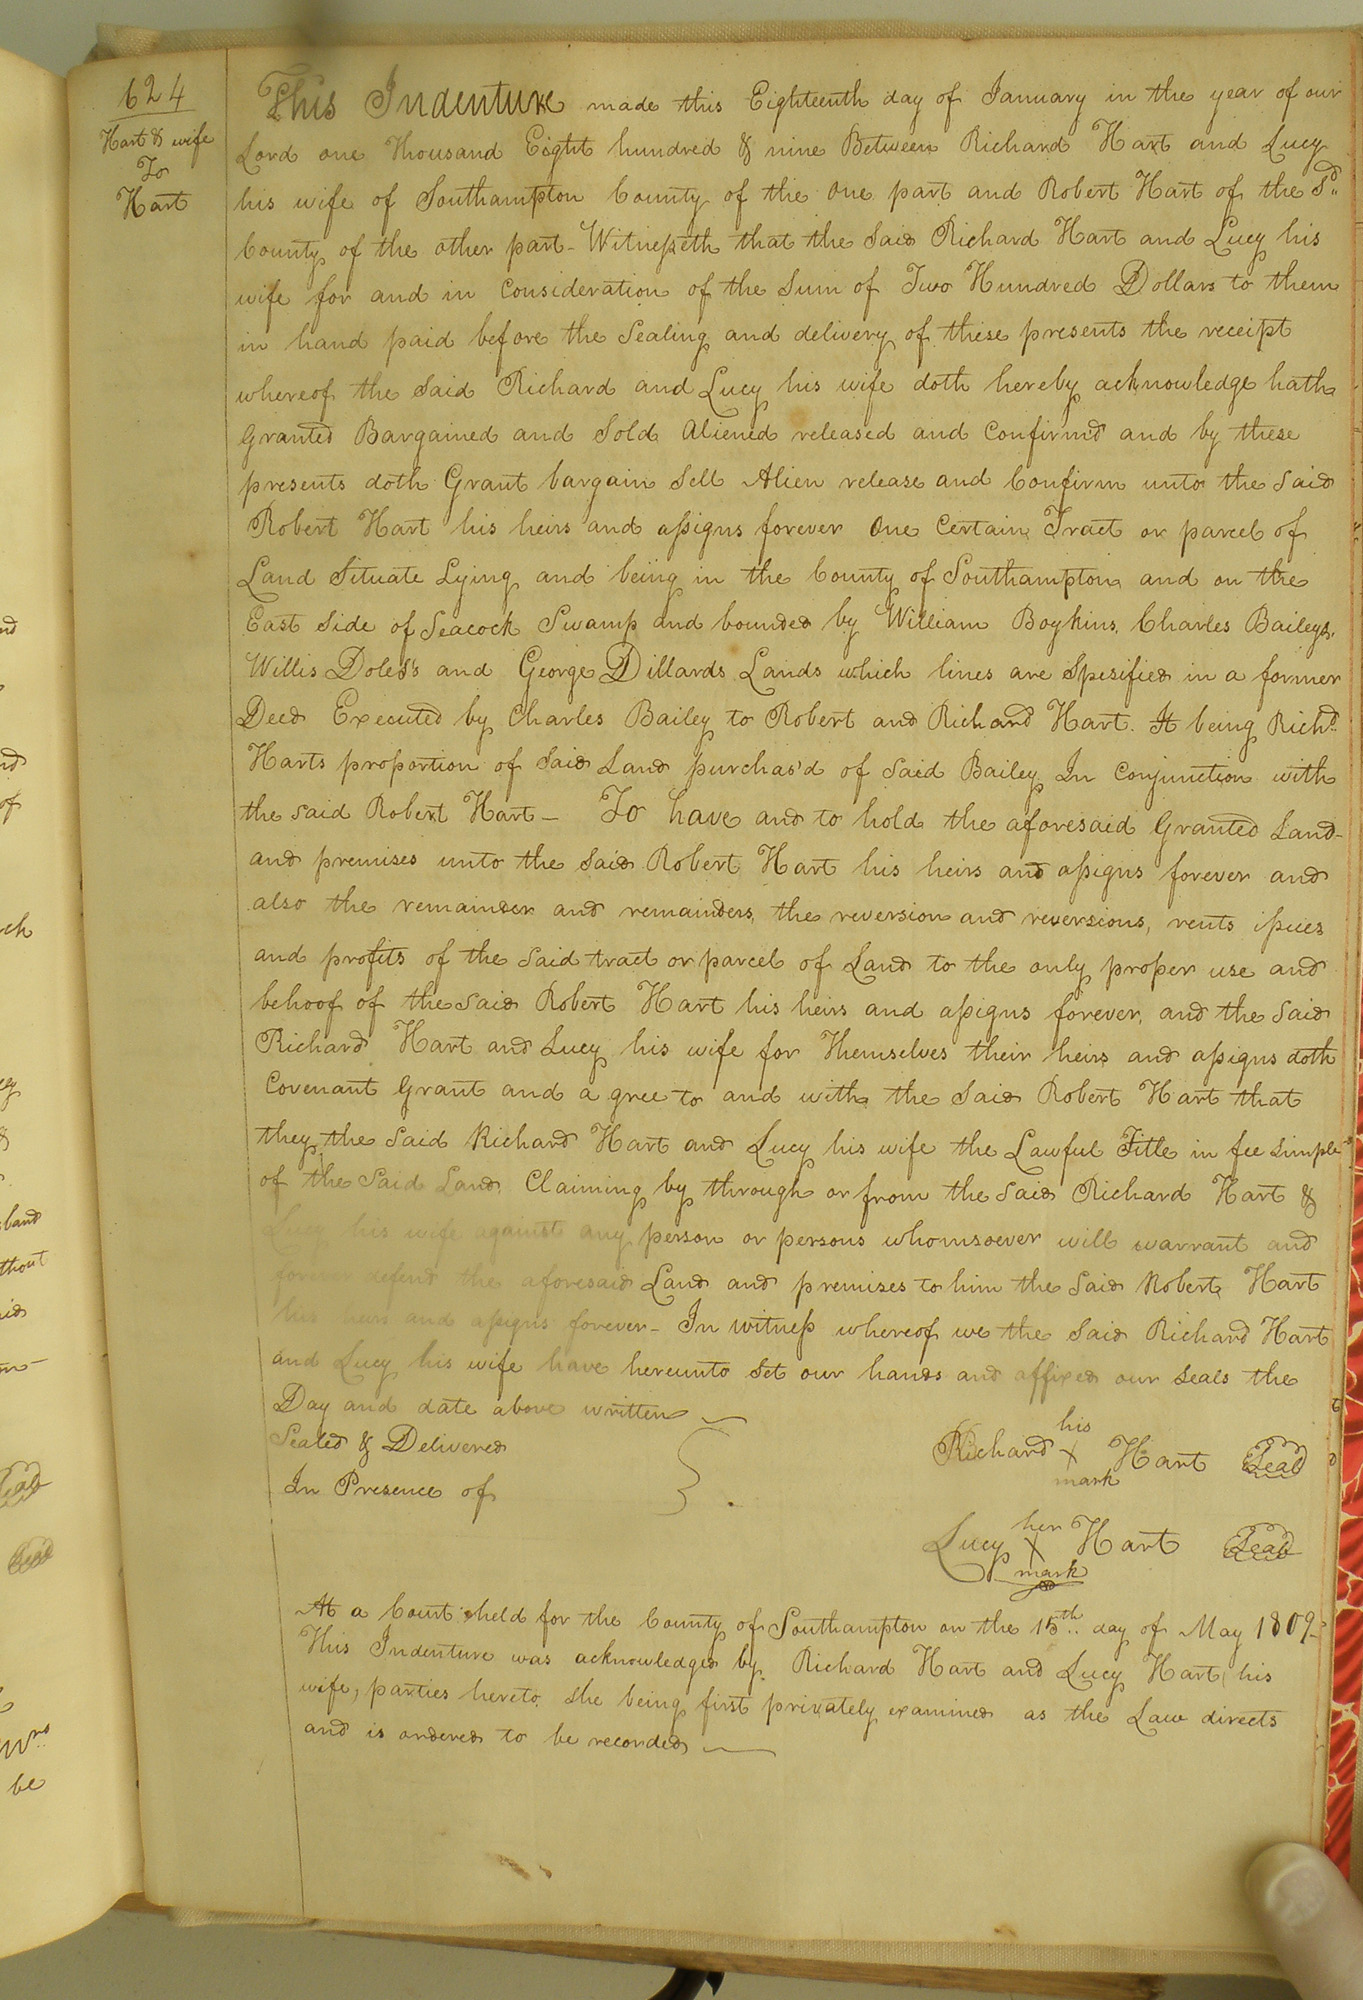 624
Hart & wife
To
Hart
This Indenture made this Eighteenth day of January in the year of our
Lord one Thousand Eight hundred & nine Between Richard Hart and Lucy
his wife of Southampton County of the one part and Robert Hart of the Sd.
County of the other part - Witnesseth that the Said Richard Hart and Lucy his
wife for and in Consideration of the Sum of Two Hundred Dollars to them
in hand paid before the Sealing and delivery of these presents the receipt
whereof the Said Richard and Lucy his wife doth hereby acknowledge hath
Granted Bargained and Sold Aliened released and Confirmd and by these
presents doth Grant bargain Sell Alien release and Confirm unto the Said
Robert Hart his heirs and assigns forever One Certain Tract or parcel of
Land Situate Lying and being in the County of Southampton and on the
East Side of Seacock Swamp and bounded by William Boykins, Charles Baileys,
Willis Doles's and George Dillards Lands which lines are Spesified in a former
Deed Executed by Charles Bailey to Robert and Richard Hart. It being Richd.
Harts proportion of Said Land purchas'd of Said Bailey In Conjunction with
the said Robert Hart - To have and to hold the aforesaid Granted Land
and premises unto the Said Robert Hart his heirs and assigns forever and
also the remainder and remainders, the reversion and reversions, rents issues
and profits of the Said tract or parcel of Land to the only proper use and
behoof of the Said Robert Hart his heirs and assigns forever, and the Said
Richard Hart and Lucy his wife for Themselves their heirs and assigns doth
Covenant Grant and a gree to and with the Said Robert Hart that
they the Said Richard Hart and Lucy his wife the Lawful Title in fee Simple
of the Said Land Claiming by through or from the Said Richard Hart &
Lucy his wife against any person or persons whomsoever will warrant and
forever defend the aforesaid Land and premises to him the Said Robert Hart
his heirs and assigns forever - In witness whereof we the Said Richard Hart
and Lucy his wife have hereunto Set our hands and affixed our Seals the
Day and date above written
Sealed & Delivered
In Presence of
his
Richard X Hart Seal
mark
her
Lucy X Hart Seal
mark
At a Court held for the County of Southampton on the 15th.. day of May 1809
This Indenture was acknowledged by Richard Hart and Lucy Hart his
wife, parties hereto She being first privately examined as the Law directs
and is ordered to be recorded